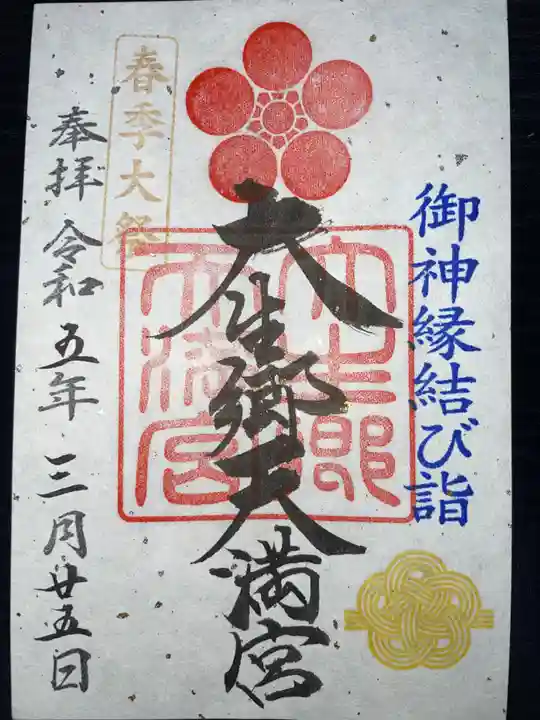 御神縁結び詣
大生郷天満宮
大生郷
天満宮
春季大祭
奉拝 令和五年 三月廿五日